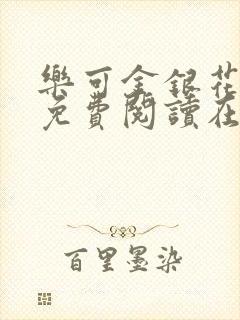 樂可金銀花
免費閱讀在
百里墨染